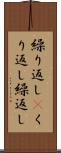 繰り返し《く
り返し繰返し